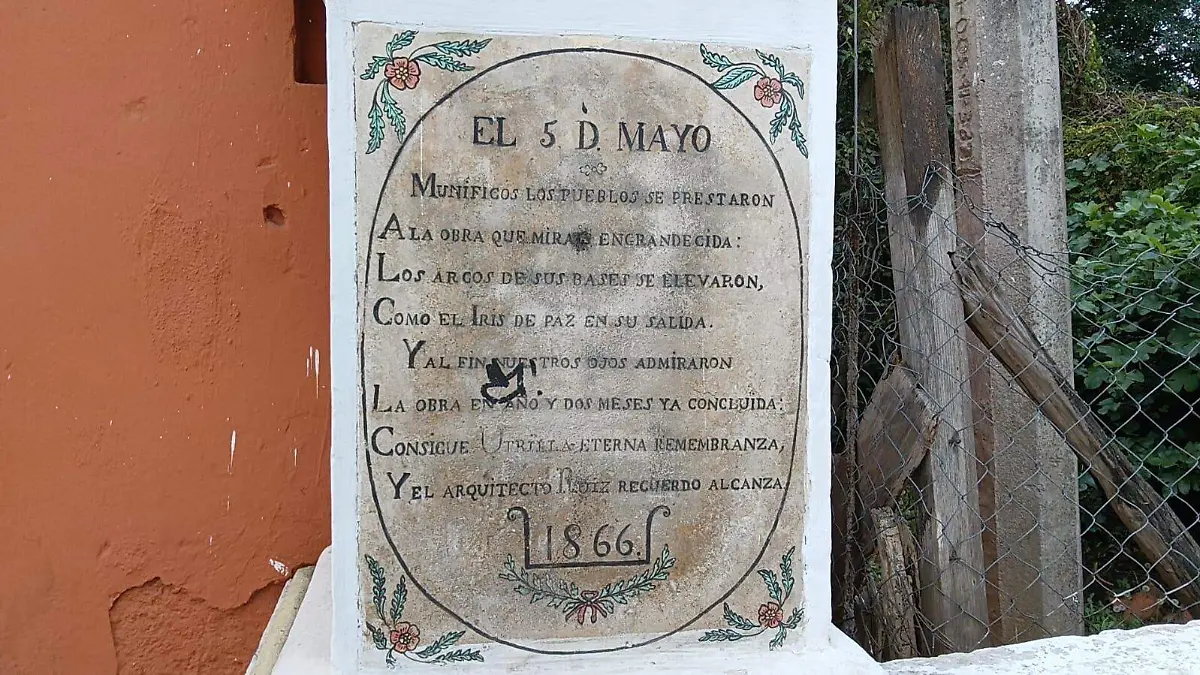 EL 5 D. MAYO
MUNÍFICOS LOS PUEBLOS SE PRESTARON
A LA OBRA QUE MIRAS ENGRANDECIDA:
LOS ARCOS DE SUS BASES SE ELEVARON,
COMO EL IRIS DE PAZ EN SU SALIDA.
Y AL FIN NUESTROS OJOS ADMIRARON
LA OBRA EN AÑO Y DOS MESES YA CONCLUIDA;
CONSIGUE UTRILLA ETERNA REMEMBRANZA,
Y EL ARQUITECTO RUIZ RECUERDO ALCANZA.
1866.